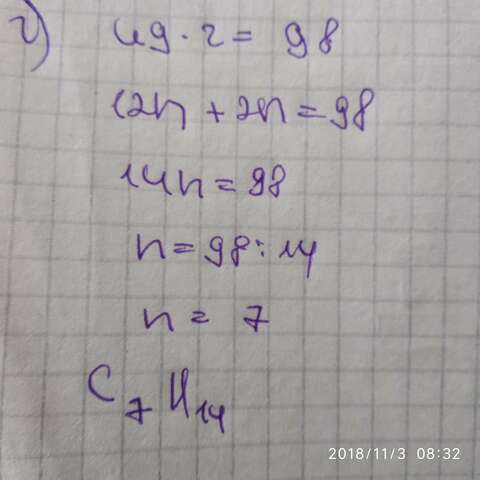 г) 49 · 2 = 98
12n + 2n = 98
14n = 98
n = 98 : 14
n = 7
C₇H₁₄
2018/11/3 08:32